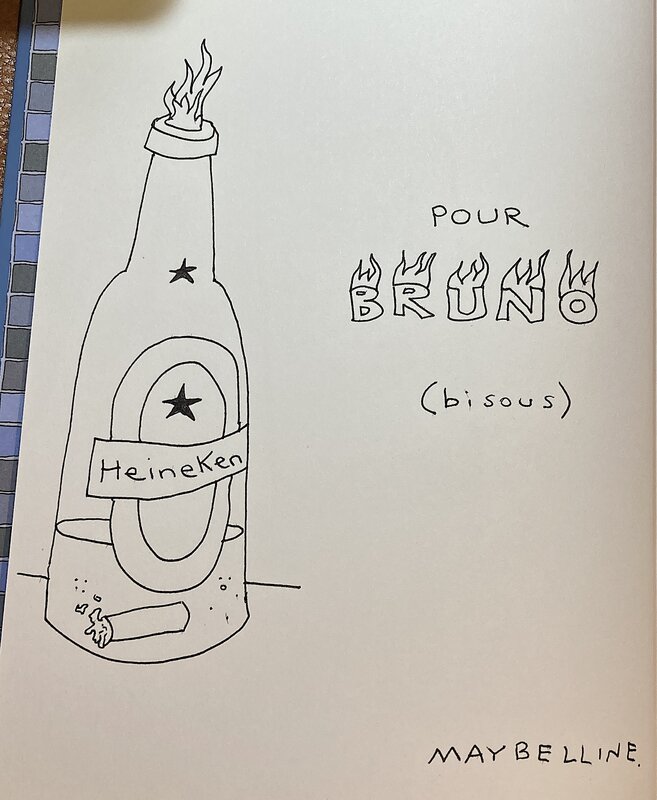 POUR
BRUNO
(bisous)
Heineken
MAYBELLINE.